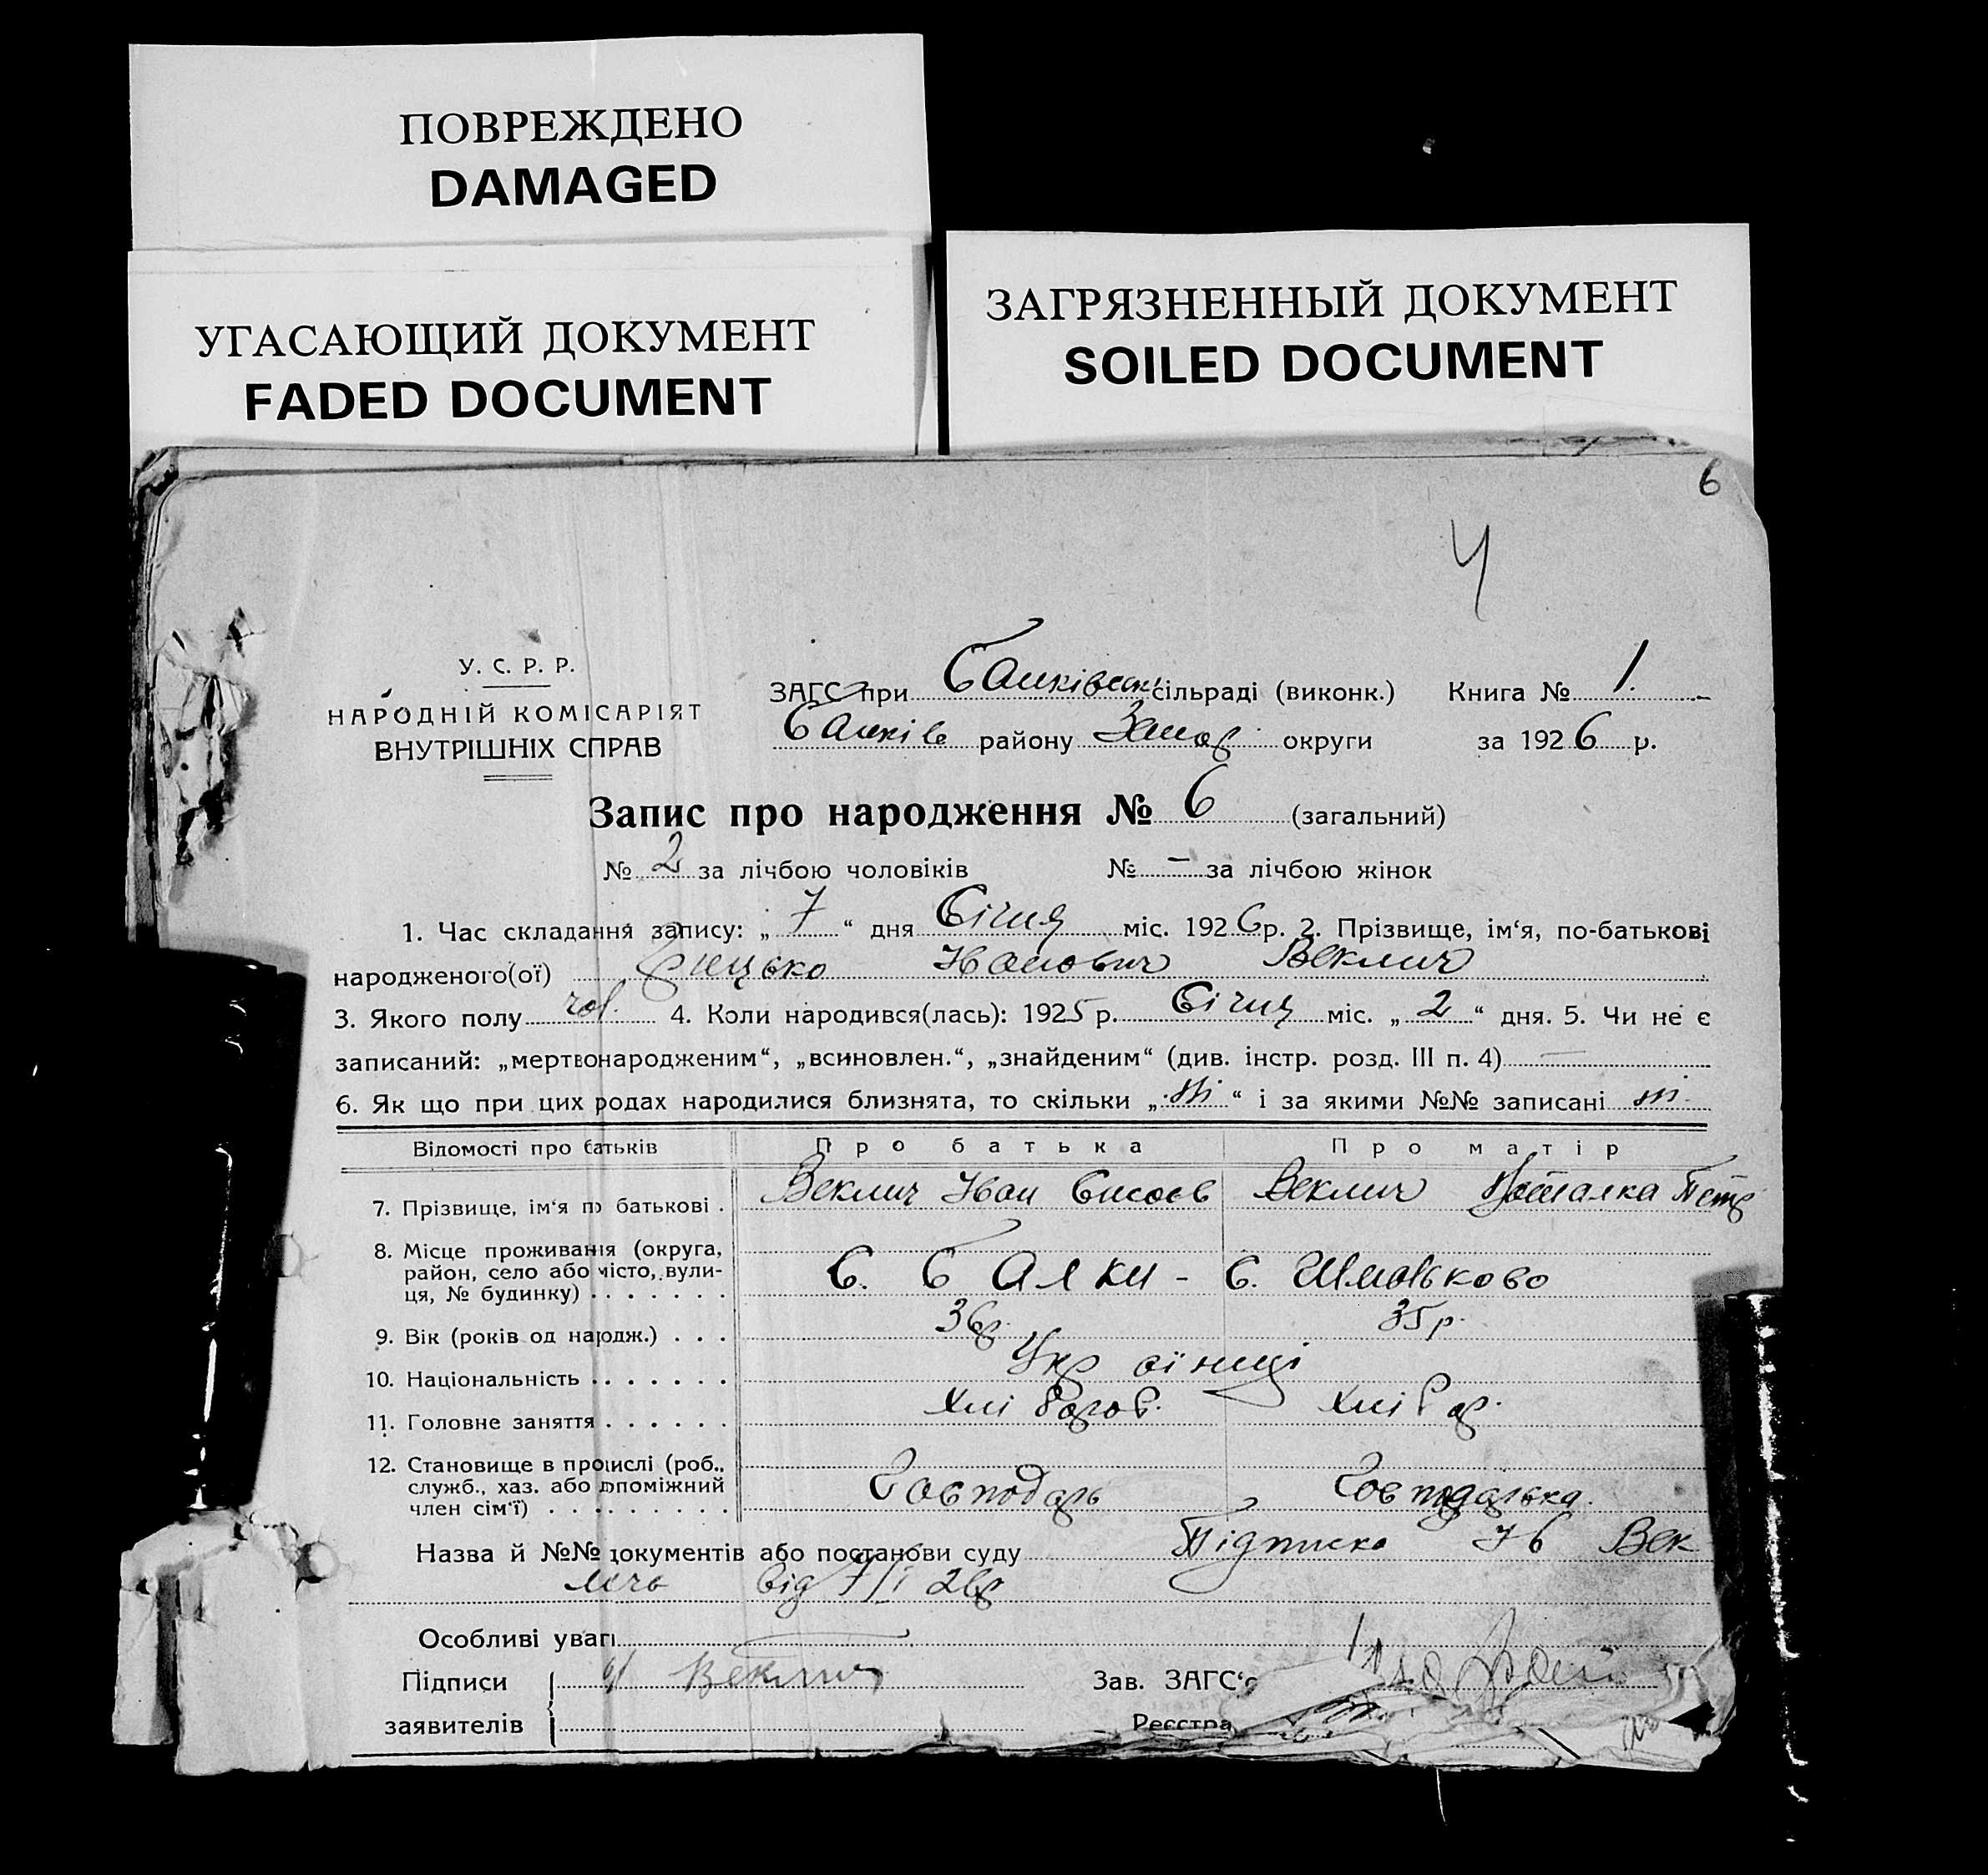 ПОВРЕЖДЕНО
DAMAGED
УГАСАЮЩИЙ ДОКУМЕНТ
FADED DOCUMENT
ЗАГРЯЗНЕННЫЙ ДОКУМЕНТ
SOILED DOCUMENT
6
4
У. С. Р. Р.
НАРОДНІЙ КОМІСАРІЯТ
ВНУТРІШНІХ СПРАВ
ЗАГС при сільраді (виконк.) Книга № 1.
району округи за 1926 р.
Запис про народження № 6 (загальний)
№ 2 за лічбою чоловіків № – за лічбою жінок
1. Час складання запису: „ 7 “ дня Січня міс. 1926 р. 2. Прізвище, ім‘я, по-батькові
народженого(ої) Грицько Іванович Веклич
3. Якого полу чол. 4. Коли народився(лась): 1925 р. Січня міс. „ 2 “ дня. 5. Чи не є
записаний: „мертвонародженим“, „всиновлен.“, „знайденим“ (див. інстр. розд. III п. 4) —
6. Як що при цих родах народилися близнята, то скільки „ ні “ і за якими №№ записані ні
Відомості про батьків Про батька Про матір
7. Прізвище, ім‘я по батькові . Веклич Іван Веклич Наталка Петр
8. Місце проживання (округа,
район, село або місто, вули-
ця, № будинку) . . . . . . . С. Б Алки - С.
9. Вік (років од народж.) . . . 36р. 35 р.
10. Національність . . . . . . . Українці
11. Головне заняття . . . . . . Хлібороб. Хлібор.
12. Становище в промислі (роб.,
служб., хаз. або допоміжний
член сім‘ї) . . . . . . . . . Господарь Господарька.
Назва й №№ документів або постанови суду Підписка Ів Век
лича від 7/I 26р
Особливі уваги
Підписи Веклич Зав. ЗАГС‘о
заявителів Реєстра